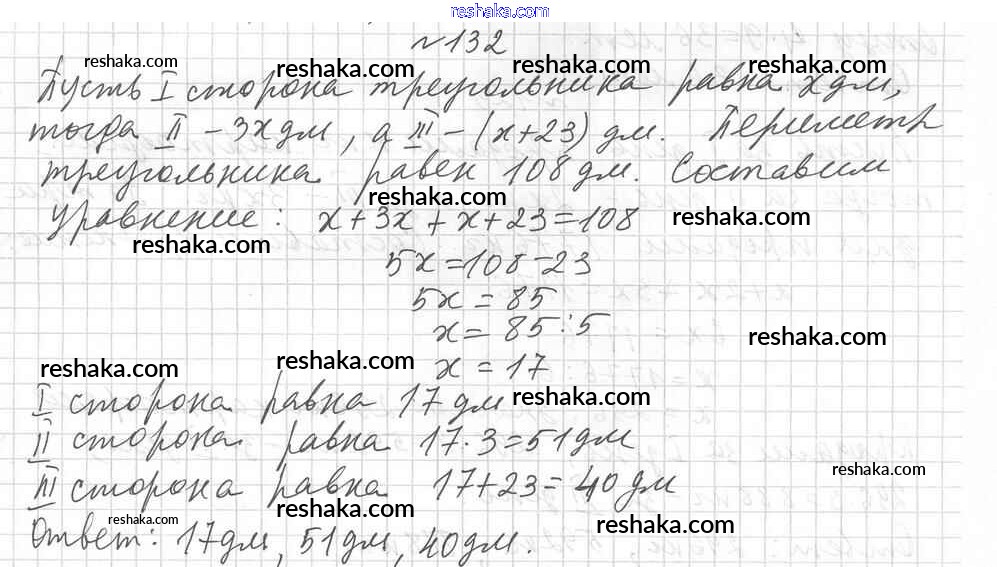 reshaka.com
№132
reshaka.com reshaka.com reshaka.com reshaka.com
Пусть I сторона треугольника равна x дм,
тогда II – 3x дм, а III – (x+23) дм. Периметр
треугольника равен 108 дм. Составим
reshaka.com reshaka.com
уравнение: x+3x+x+23=108
reshaka.com
5x=108-23
5x=85
x=85:5
reshaka.com
x=17
reshaka.com reshaka.com
I сторона равна 17 дм
reshaka.com
II сторона равна 17·3=51дм
reshaka.com
III сторона равна 17+23=40 дм
reshaka.com reshaka.com reshaka.com
Ответ: 17дм, 51дм, 40дм.